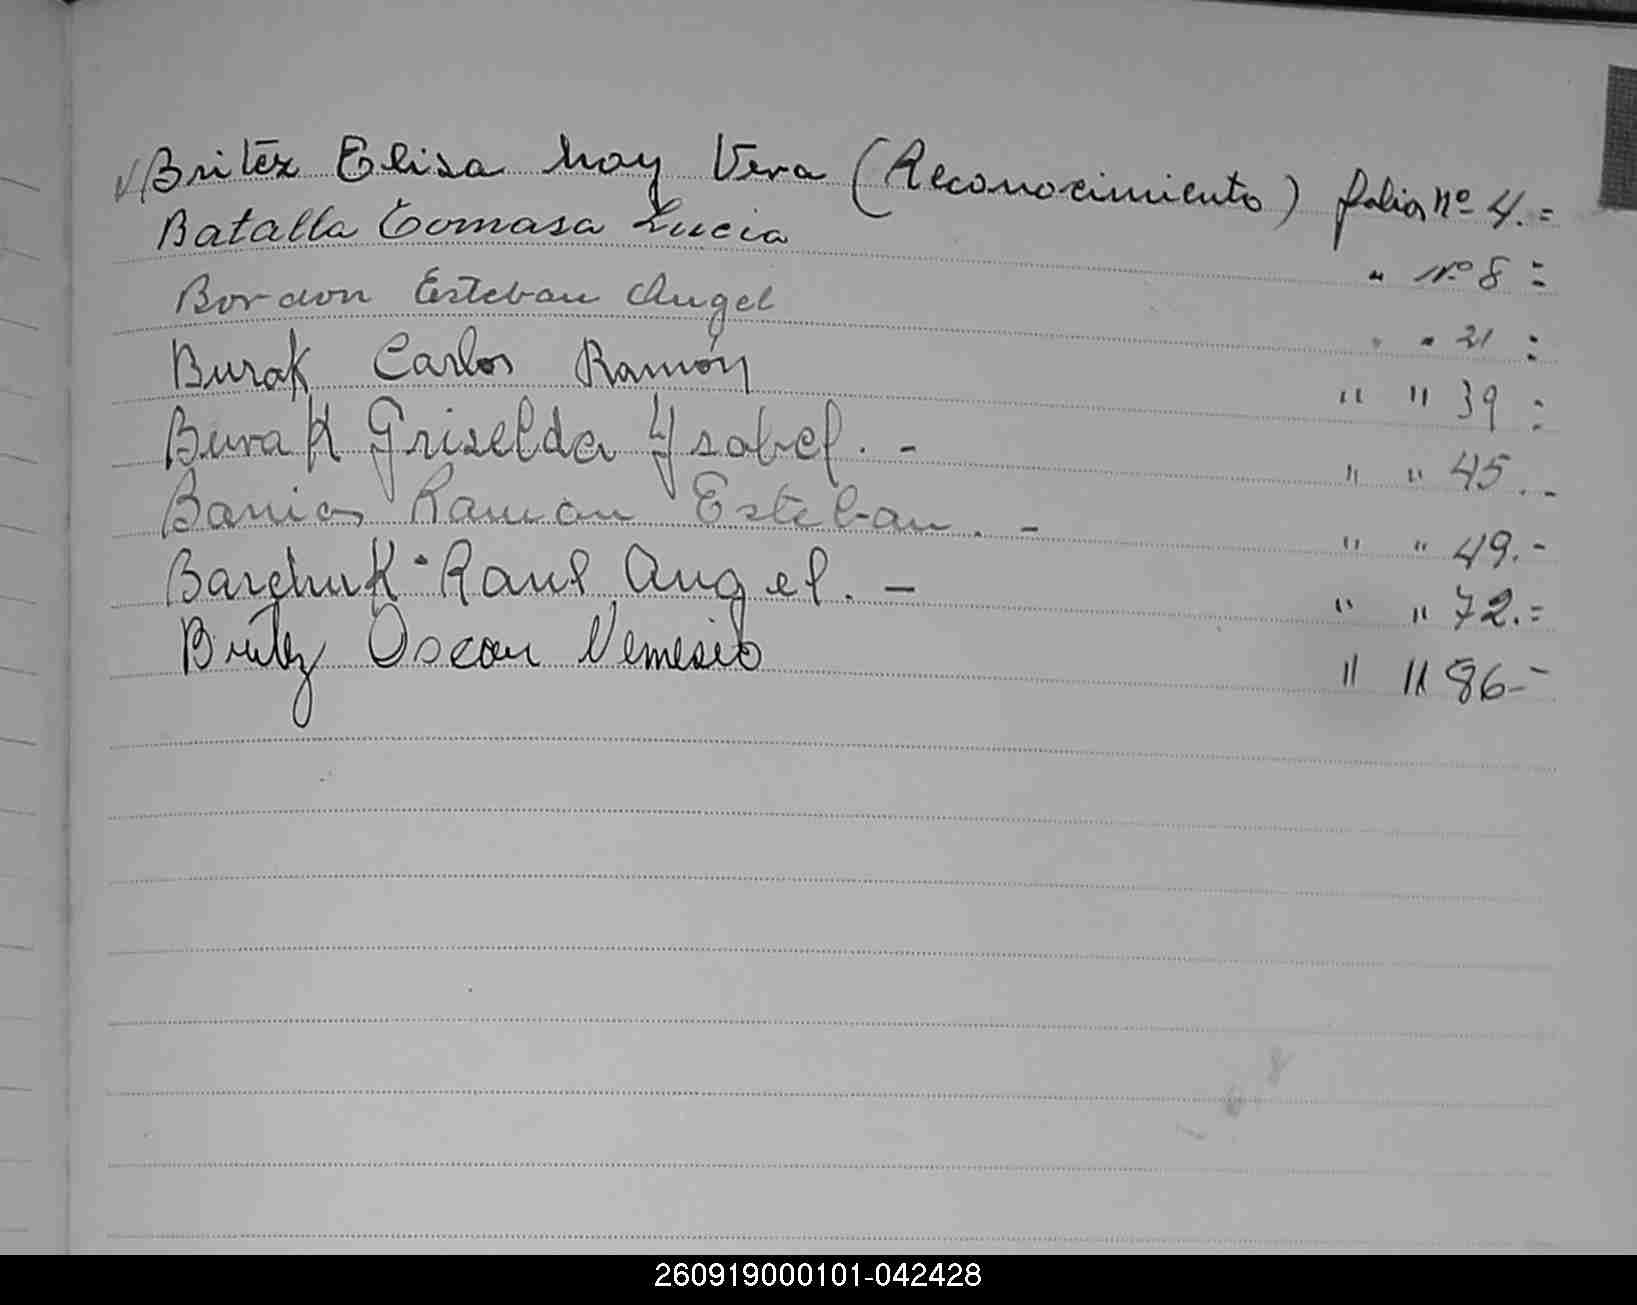 Britéz Elisa hoy Vera (Reconocimiento) folio nº 4.=
Batalla Tomasa Lucia " nº 8 =
Bordon Esteban Angel " " 21 =
Burak Carlos Ramón " " 39 =
Burak Griselda Ysabel. - " " 45 . -
Ramon Esteban. - " " 49.-
Barchuk Raul Angel. - " " 72.=
Britez Oscar Nemesio " " 86.-
260919000101-042428